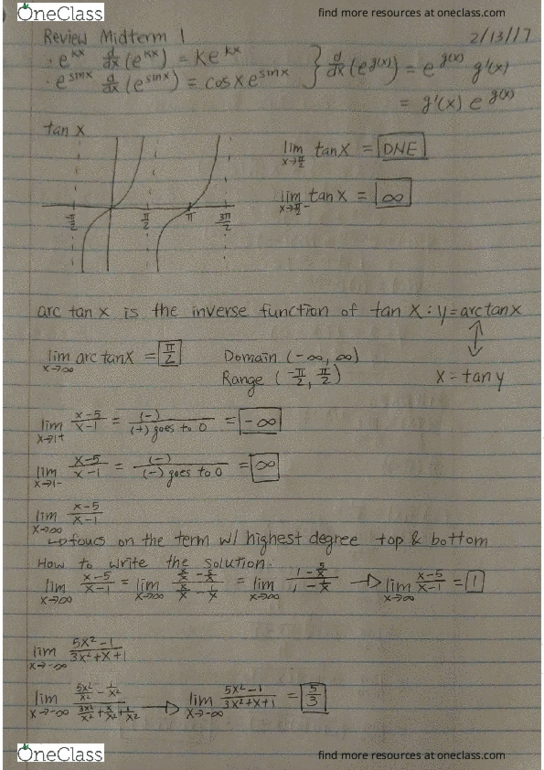 OneClass
find more resources at oneclass.com
Review Midterm 1
2/13/17
· e^{kx} d/dx (e^{kx}) = ke^{kx}
· e^{sinx} d/dx (e^{sinx}) = cosxe^{sinx} } d/dx (e^{g(x)}) = e^{g(x)} g'(x)
= g'(x) e^{g(x)}
tan x
lim x→π/2 tanx = DNE
lim x→π/2- tanx = ∞
π/2 π 3π/2
arc tan x is the inverse function of tan x : y = arctanx
lim x→∞ arc tanx = π/2
Domain (-∞, ∞)
Range (-π/2, π/2)
x = tan y
lim x→1+ x-5/x-1 = (-)/(+) goes to 0 = -∞
lim x→1- x-5/x-1 = (-)/(-) goes to 0 = ∞
lim x→∞ x-5/x-1
↳ foucs on the term w/ highest degree top & bottom
How to write the solution.
lim x→∞ x-5/x-1 = lim x→∞ (x/x - 5/x)/(x/x - 1/x) = lim x→∞ (1 - 5/x)/(1 - 1/x) → lim x→∞ x-5/x-1 = 1
lim x→-∞ 5x²-1/3x²+x+1
lim x→-∞ (5x²/x² - 1/x²)/(3x²/x² + x/x² + 1/x²) → lim x→-∞ 5x²-1/3x²+x+1 = 5/3
OneClass
find more resources at oneclass.com